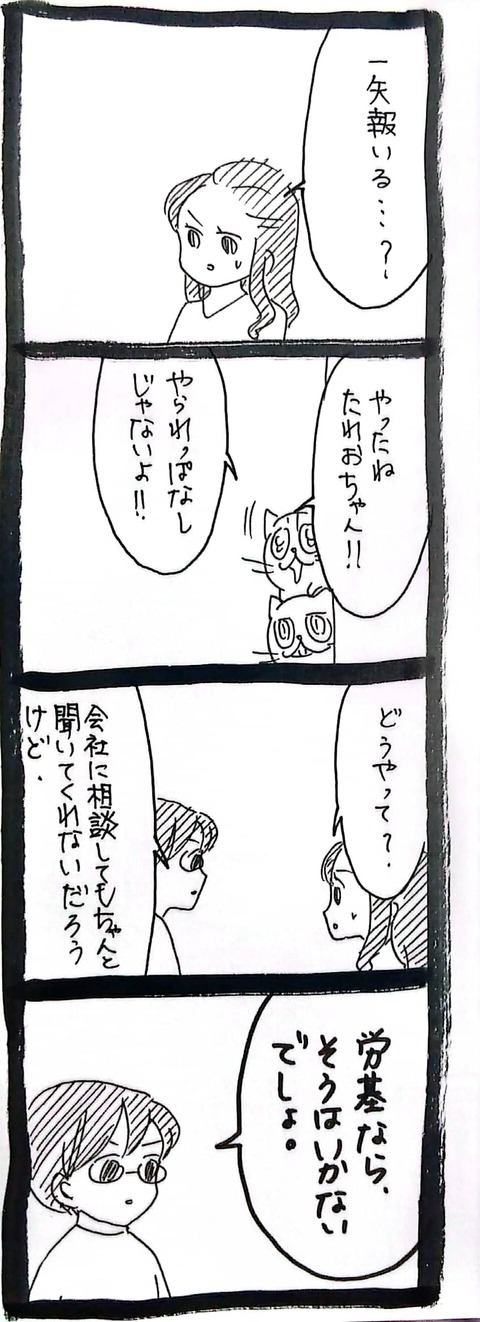 一矢報いる…?
やったね
たれおちゃん!!
やられっぱなし
じゃないよ!!
どうやって?
会社に相談してもちゃんと
聞いてくれないだろう
けど.
労基なら、
そうはいかない
でしょ。